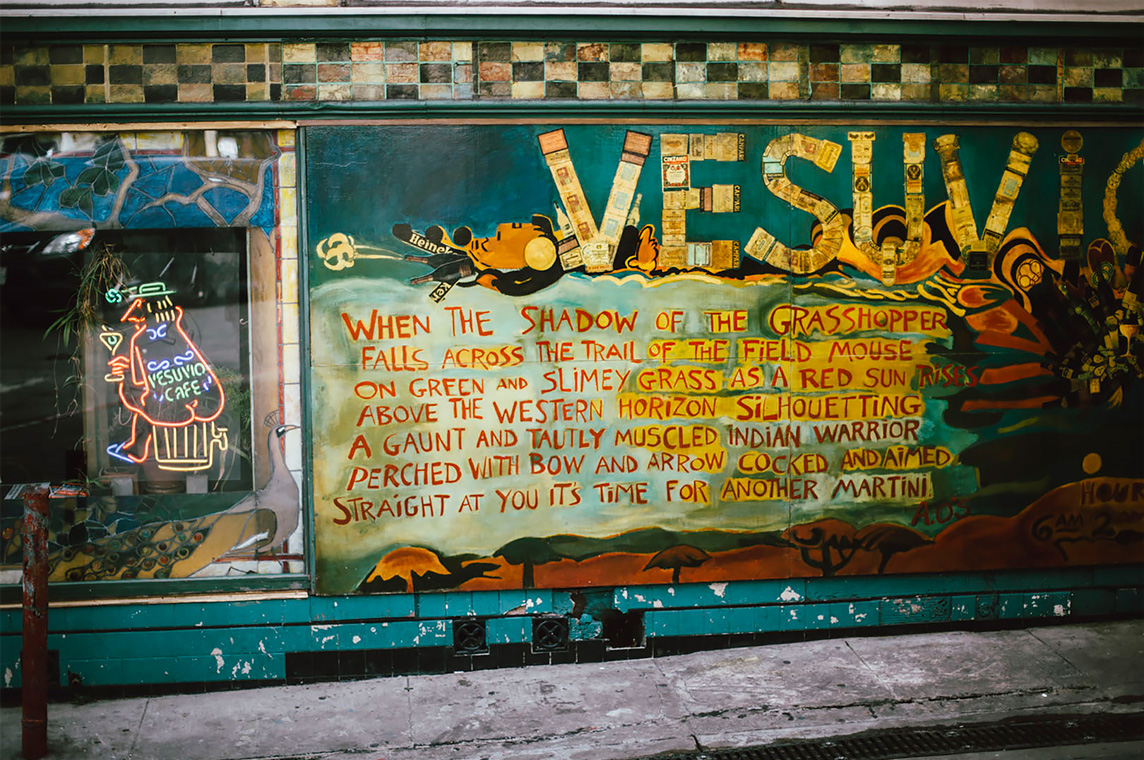 VESUVIO
Heineken
CINZANO
CAMPARI
VESUVIO
CAFE
WHEN THE SHADOW OF THE GRASSHOPPER
FALLS ACROSS THE TRAIL OF THE FIELD MOUSE
ON GREEN AND SLIMEY GRASS AS A RED SUN RISES
ABOVE THE WESTERN HORIZON SILHOUETTING
A GAUNT AND TAUTLY MUSCLED INDIAN WARRIOR
PERCHED WITH BOW AND ARROW COCKED AND AIMED
STRAIGHT AT YOU IT'S TIME FOR ANOTHER MARTINI
HOUR
6AM 2